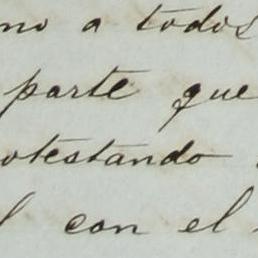 no a todos
parte que
otestando
l con el